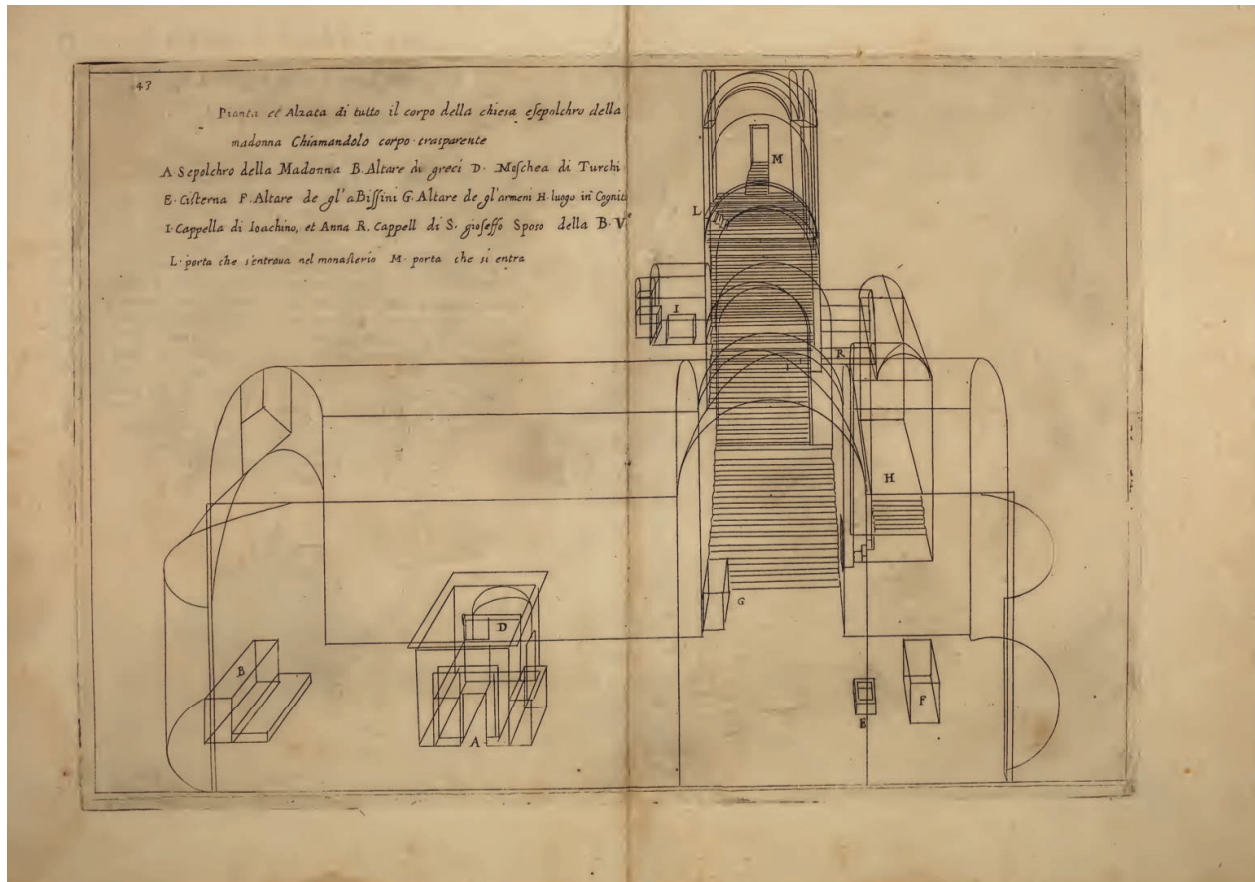 43
Pianta et Alzata di tutto il corpo della chiesa eſepolchro della
madonna Chiamandolo corpo trasparente
A Sepolchro della Madonna B. Altare di greci D. Moſchea di Turchi
E. Ciſterna F. Altare de gl'aBiſſini G. Altare de gl'armeni H. luogo in Cognito
I. Cappella di Ioachino, et Anna R. Cappell di S. gioſeffo Sposo della B. Ve
L. porta che s'entraua nel monaſterio M. porta che si entra
M
L
I
R
H
G
D
B
A
E
F